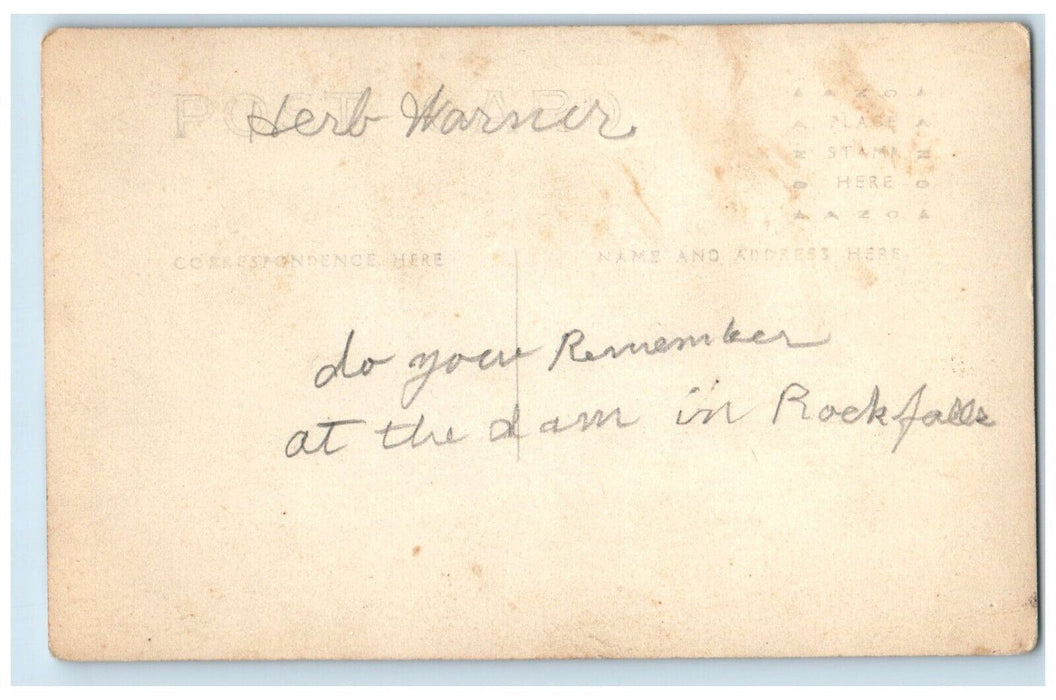 POST CARD
Herb Warner
AZO
PLACE
STAMP
HERE
AZO
CORRESPONDENCE HERE
NAME AND ADDRESS HERE
do you Remember
at the dam in Rockfalls